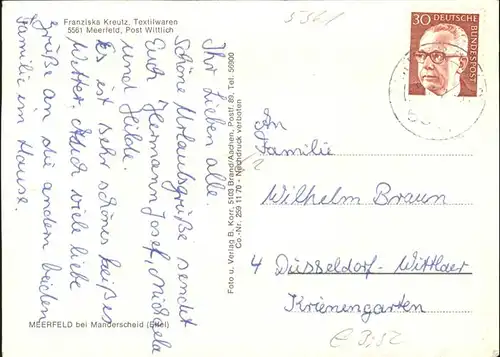 Franziska Kreutz, Textilwaren
5561 Meerfeld, Post Wittlich
5561
Ihr Lieben alle.
Schöne Urlaubsgrüße sendet
Euch Hermann Josef, Michaela
und Hilde.
Es ist sehr schönes heißes
Wetter. Auch viele liebe
Grüße an die andern beiden
Familie im Hause.
MEERFELD bei Manderscheid (Eifel)
Foto u. Verlag B. Korr, 5103 Brand/Aachen, Postf. 89, Tel. 56900
Co.-Nr. 259 11 70 - Nachdruck verboten
30 DEUTSCHE
BUNDESPOST
An
Familie
Wilhelm Braun
4 Düsseldorf-Wittlaer
Krienengarten